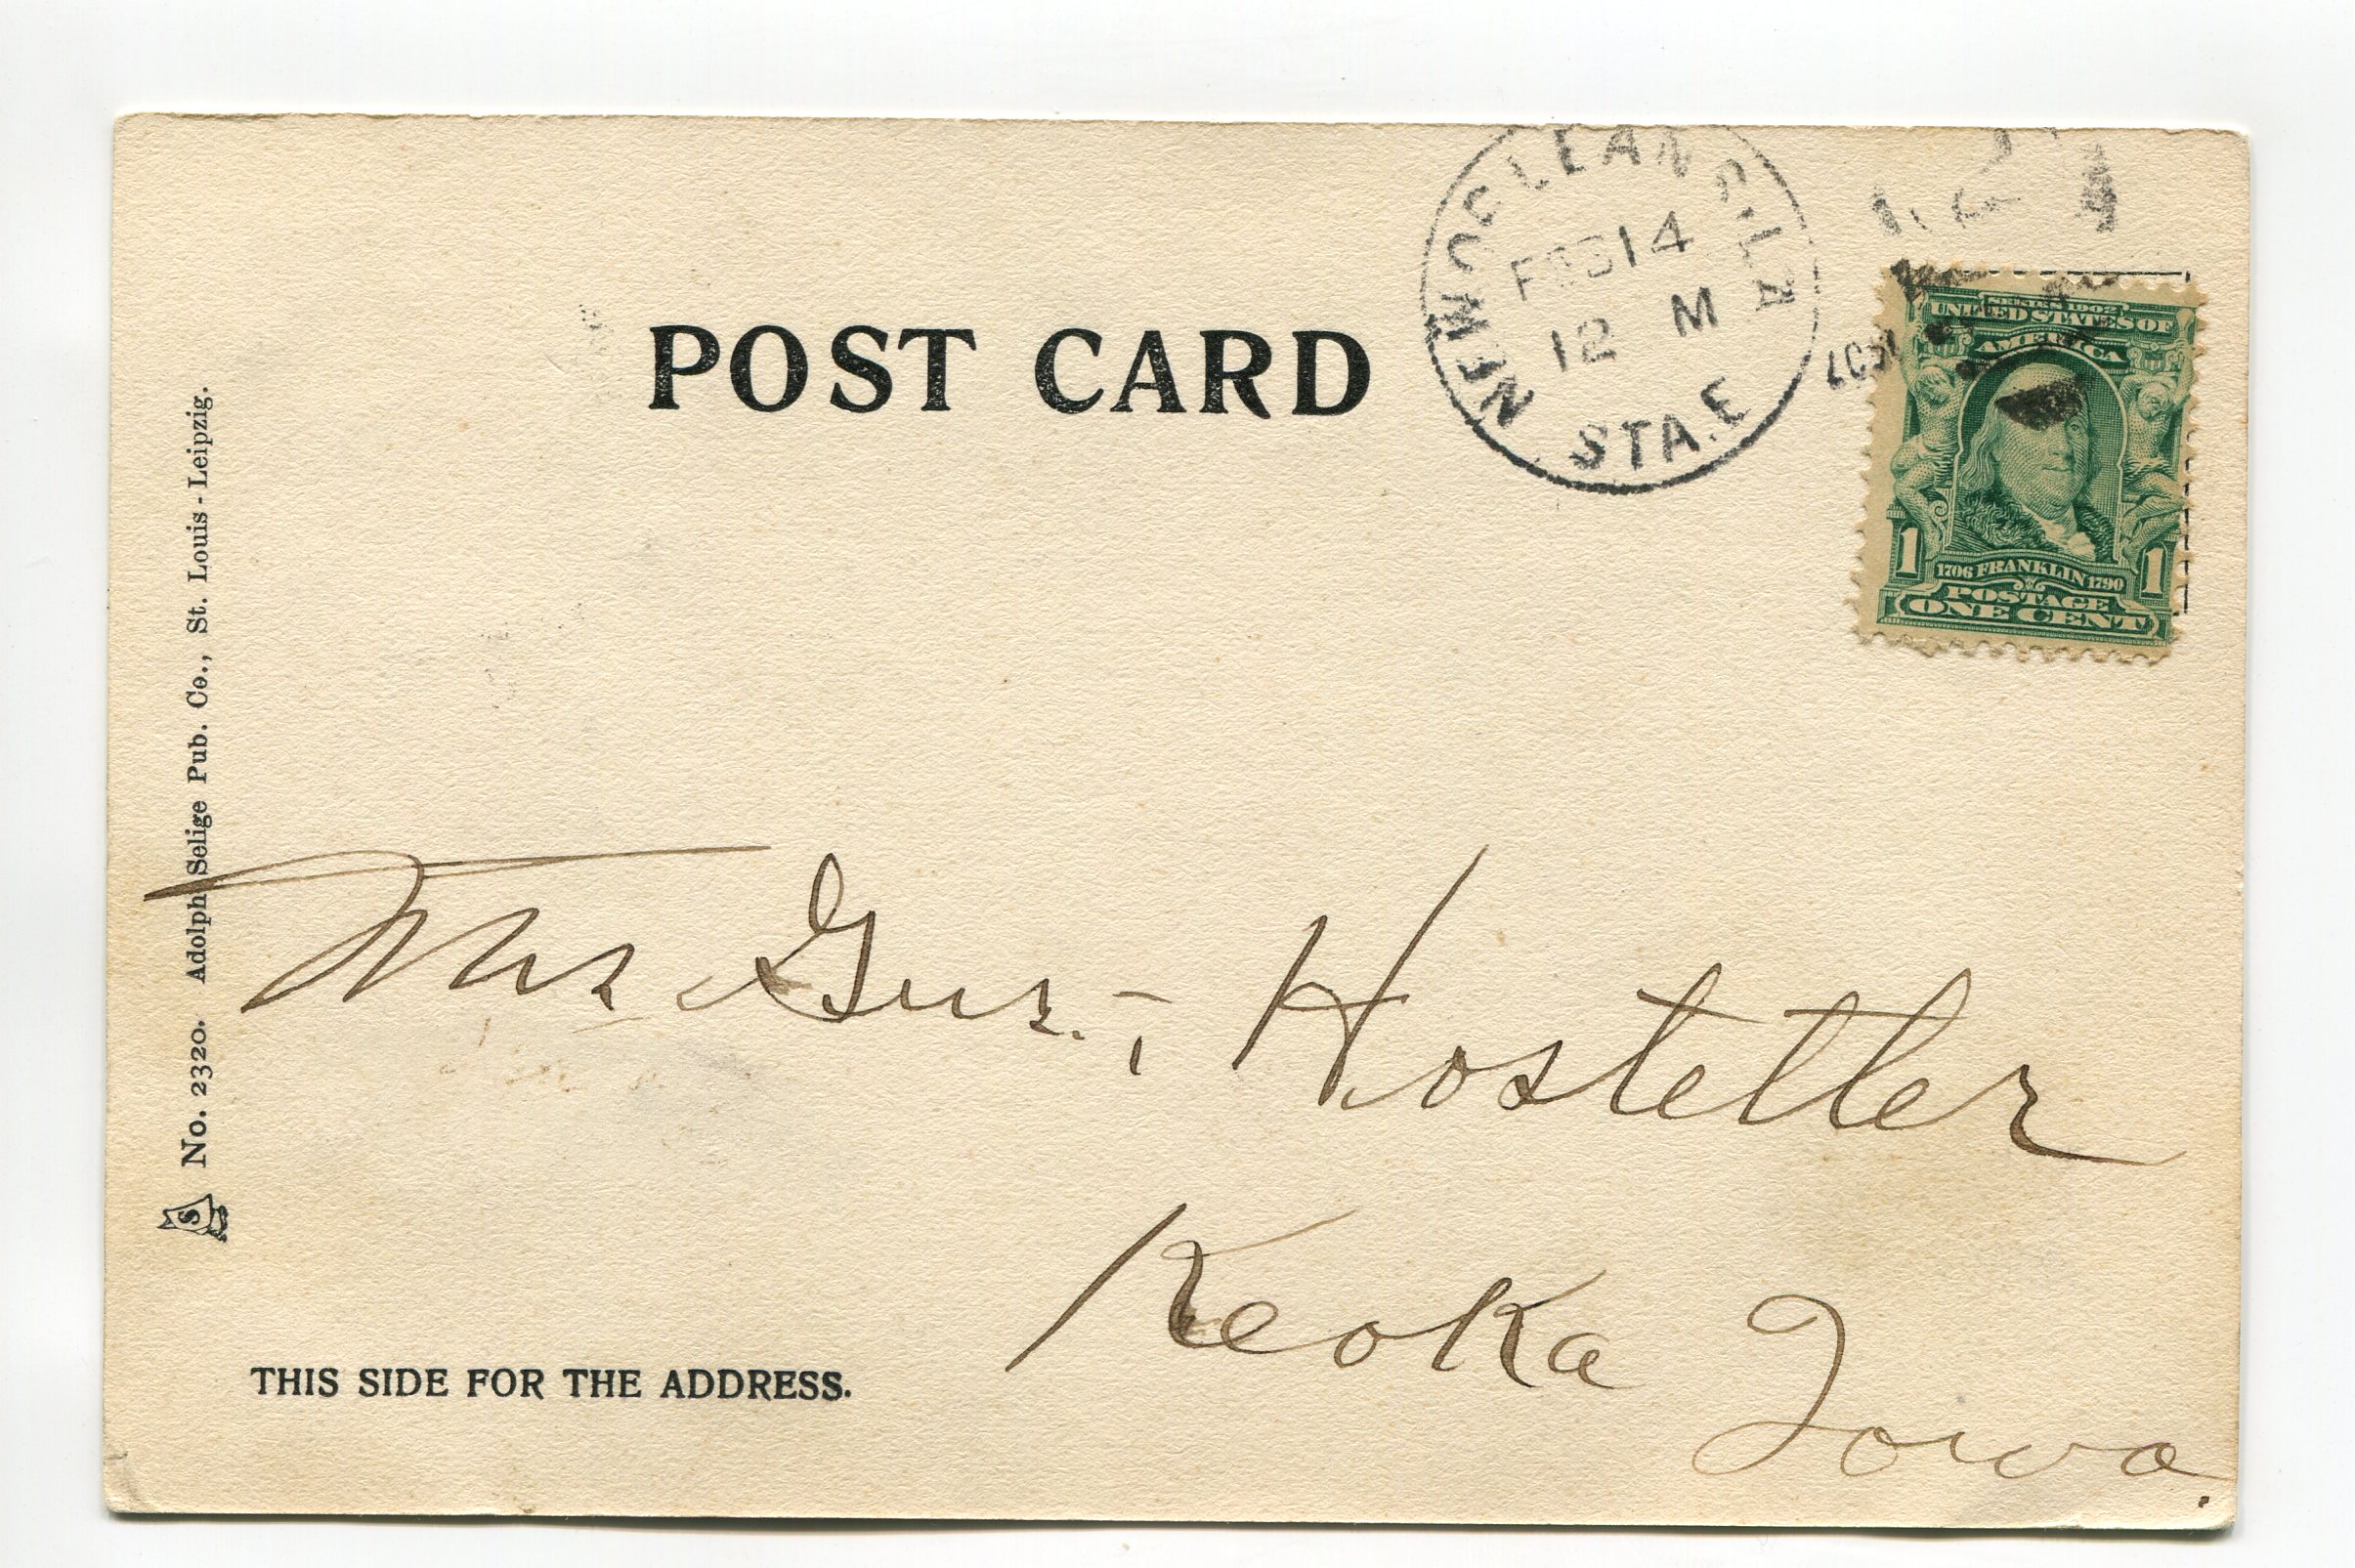 POST CARD
NEW ORLEANS, LA
FEB 14
12 M
STA. E
1907
SERIES 1902
UNITED STATES OF
AMERICA
1 1706 FRANKLIN 1790 1
POSTAGE
ONE CENT
No. 2320. Adolph Selige Pub. Co., St. Louis - Leipzig.
S
Mrs Gus. ; Hostetler
Keoka Iowa.
THIS SIDE FOR THE ADDRESS.